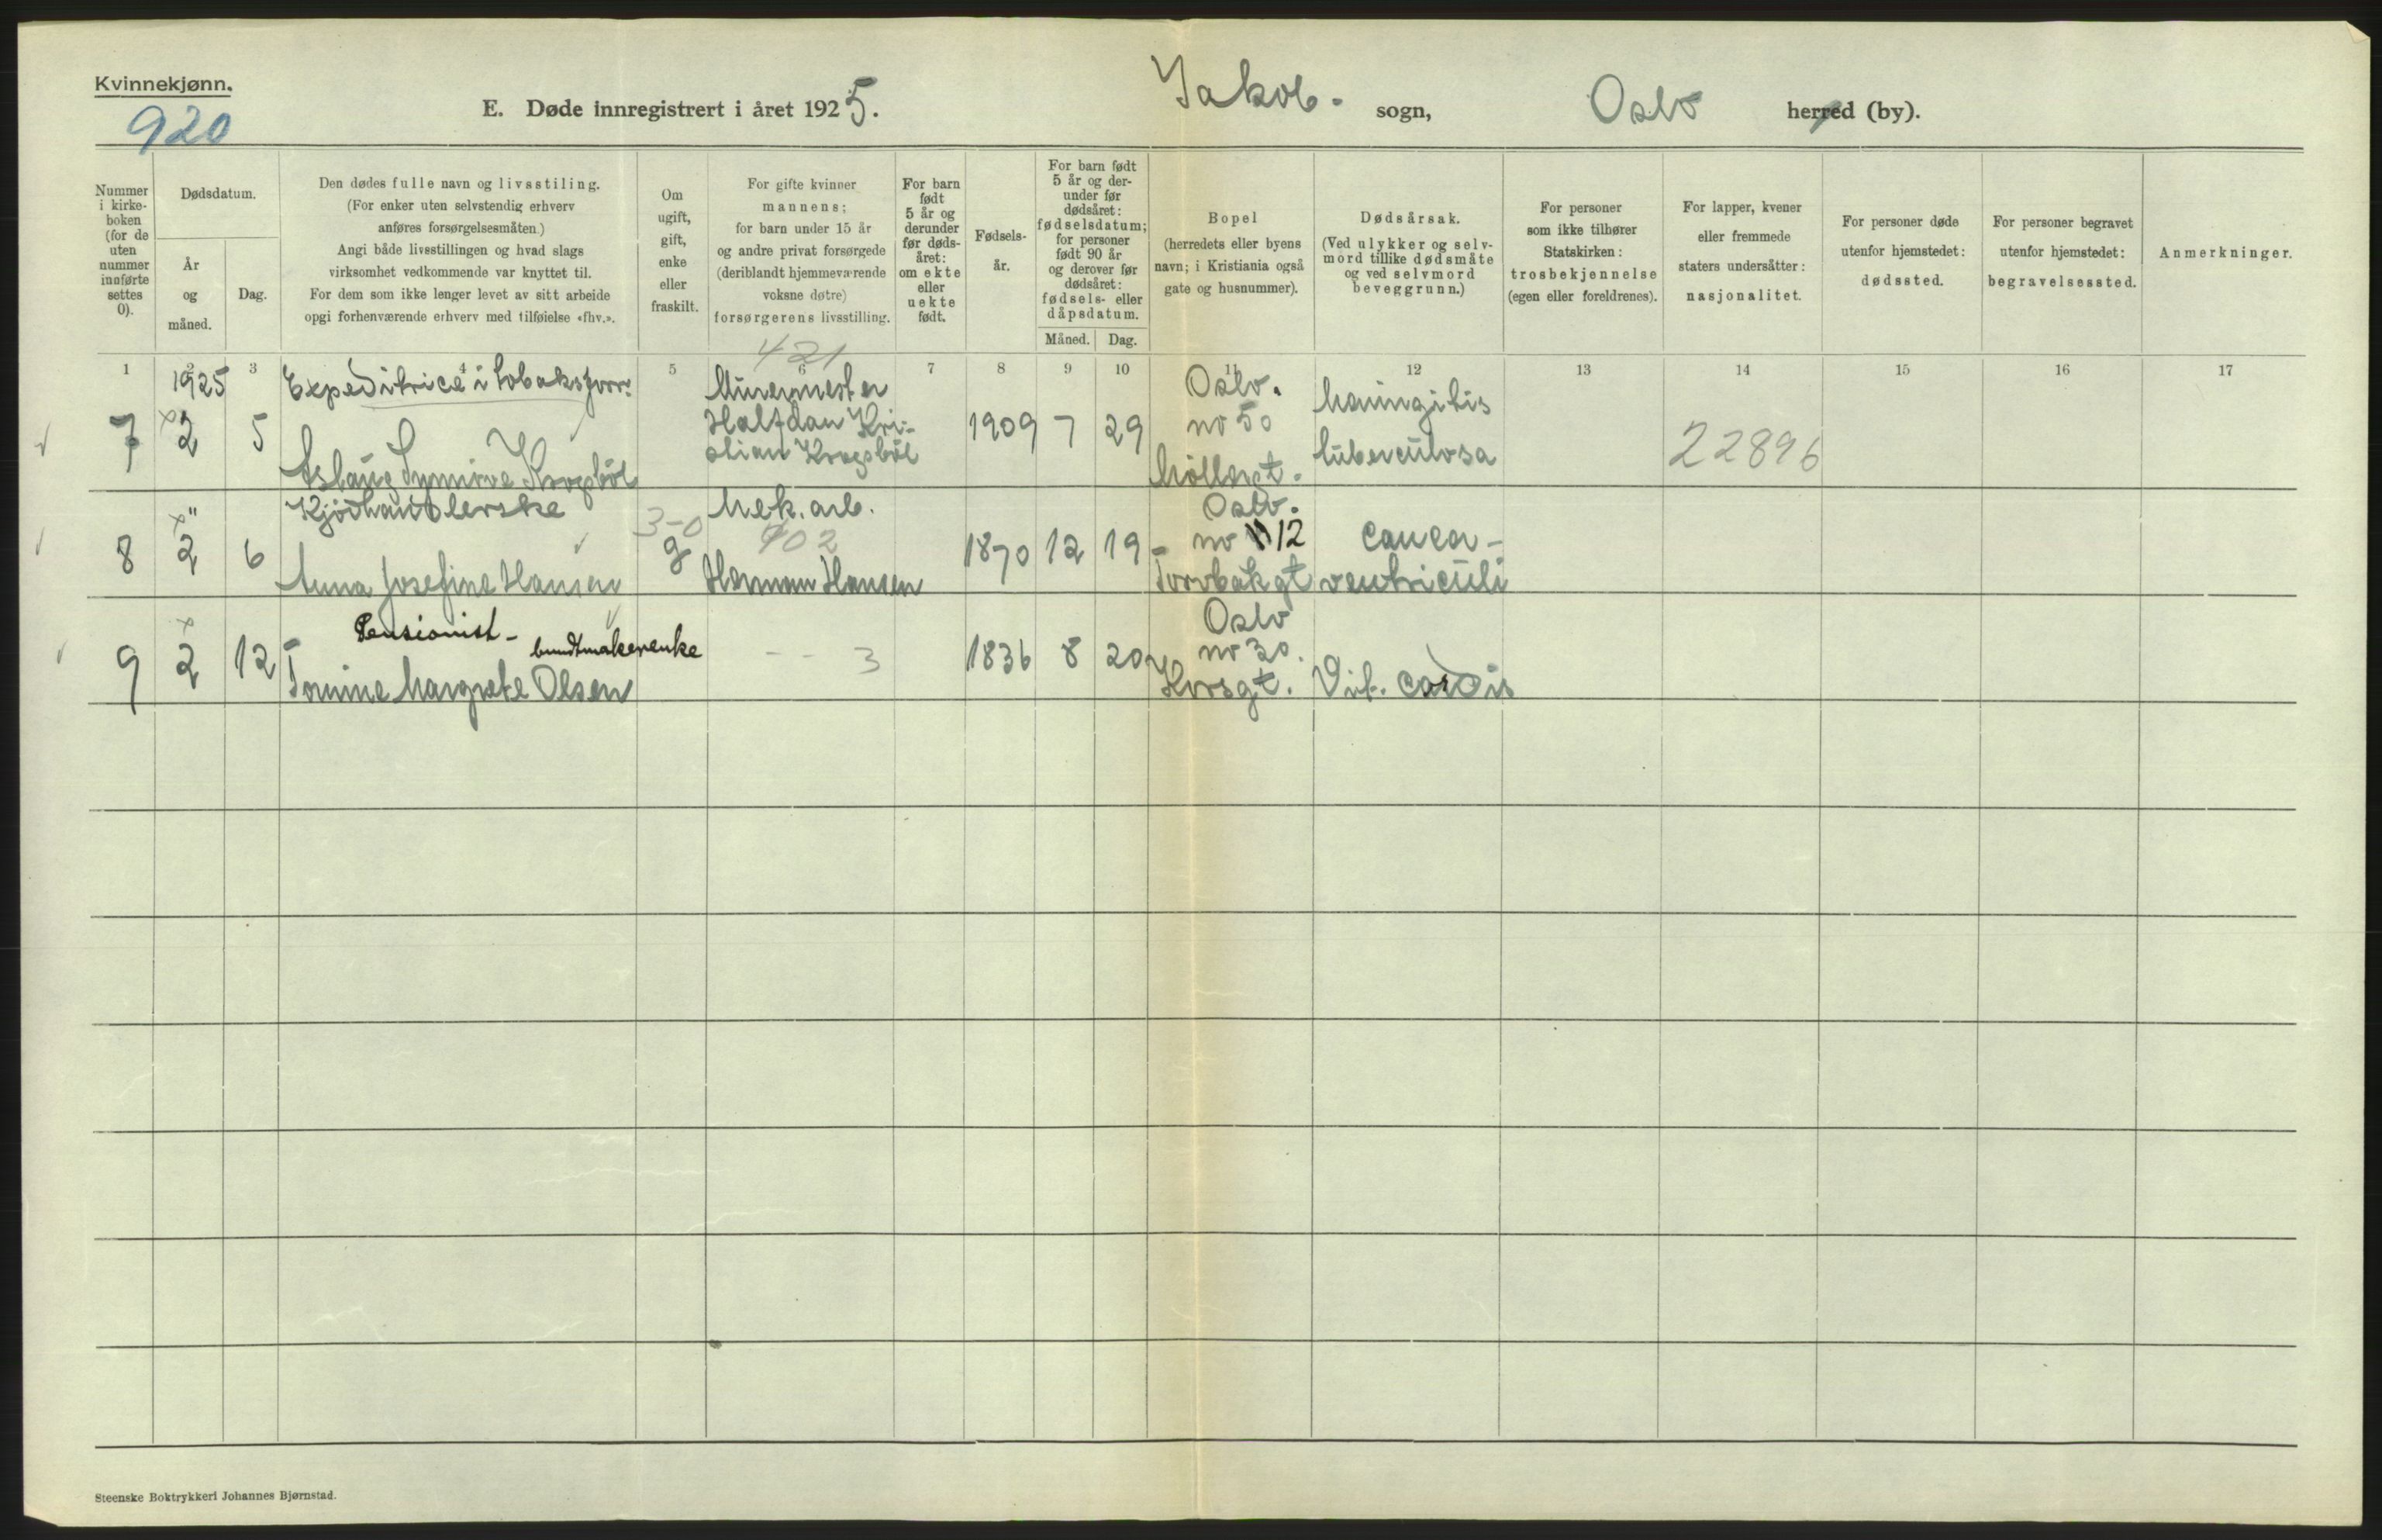 Kvinnekjønn.
920
E. Døde innregistrert i året 1925.
Jakob. sogn,
Oslo herred (by).
Nummer
i kirke-
boken
(for de
uten
nummer
innførte
settes
0).
Dødsdatum.
År
og
måned.
Dag.
Den dødes fulle navn og livsstiling.
(For enker uten selvstendig erhverv
anføres forsørgelsesmåten.)
Angi både livsstillingen og hvad slags
virksomhet vedkommende var knyttet til.
For dem som ikke lenger levet av sitt arbeide
opgi forhenværende erhverv med tilføielse «fhv.».
Om
ugift,
gift,
enke
eller
fraskilt.
For gifte kvinner
mannens;
for barn under 15 år
og andre privat forsørgede
(deriblandt hjemmeværende
voksne døtre)
forsørgerens livsstilling.
For barn
født
5 år og
derunder
før døds-
året:
om ekte
eller
uekte
født.
Fødsels-
år.
For barn født
5 år og der-
under før
dødsåret:
fødselsdatum;
for personer
født 90 år
og derover før
dødsåret:
fødsels- eller
dåpsdatum.
Måned. Dag.
Bopel
(herredets eller byens
navn; i Kristiania også
gate og husnummer).
Dødsårsak.
(Ved ulykker og selv-
mord tillike dødsmåte
og ved selvmord
beveggrunn.)
For personer
som ikke tilhører
Statskirken:
trosbekjennelse
(egen eller foreldrenes).
For lapper, kvener
eller fremmede
staters undersåtter:
nasjonalitet.
For personer døde
utenfor hjemstedet:
dødssted.
For personer begravet
utenfor hjemstedet:
begravelsessted.
Anmerkninger.
1 2 3 4 5 6 7 8 9 10 11 12 13 14 15 16 17
421
1925 Expeditrice i tobaksforr. Murermester Oslo. Meningitis
7 2 5 Halfdan Kri- 1909 7 29 no 50 22896
Aslaug Synnøve Krogsbøl stian Krogsbøl Møllergt. tuberculosa
" Kjødhandlerske Mek. arb. Oslo.
8 2 6 3-0 g 902 1870 12 19 no 12 Cancer
Anna Josefine Hansen Herman Hansen Torvbakgt ventriculi
Pensionist - buntmakerenke Oslo
9 2 12 - - 3 1836 8 20 no 30.
Tomine Margrete Olsen Korsgt. Vit. cordis
Steenske Boktrykkeri Johannes Bjørnstad.